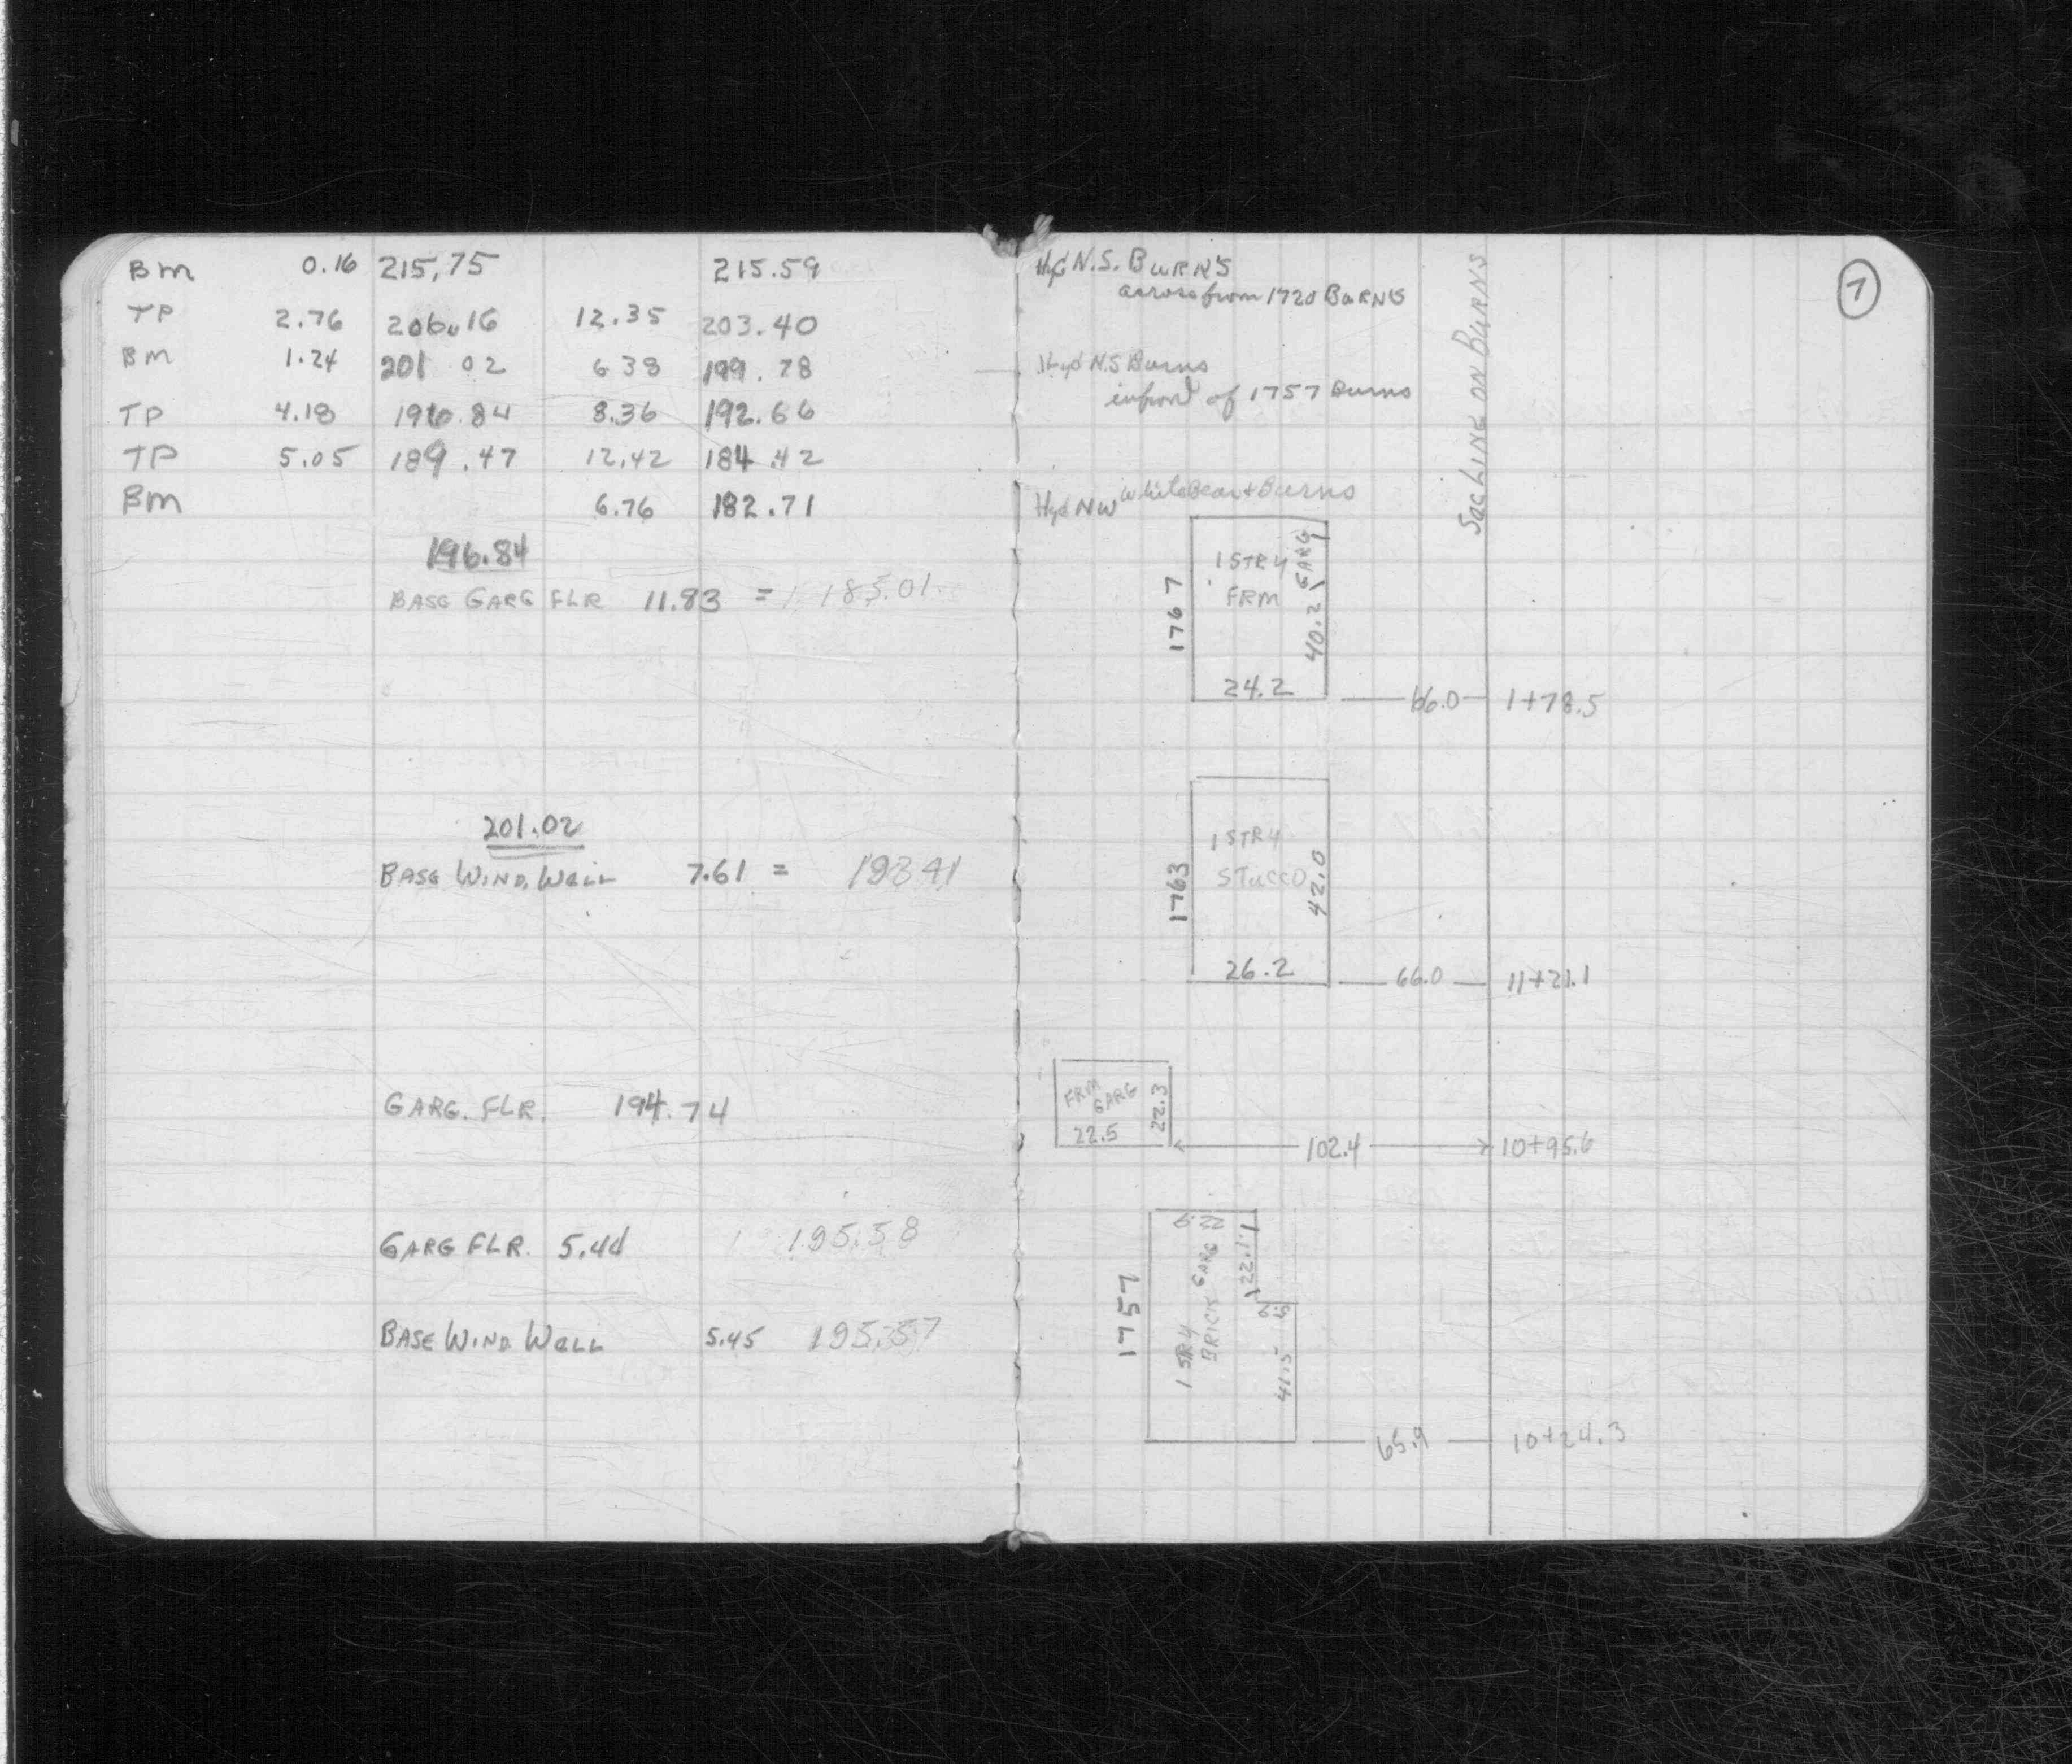 BM 0.16 215,75 215.59
TP 2.76 206.16 12.35 203.40
BM 1.24 201 02 6 38 199.78
TP 4.18 196.84 8.36 192.66
TP 5.05 189.47 12.42 184.42
BM 6.76 182.71
196.84
BASE GARG FLR 11.83 = 185.01
201.02
BASE WIND. WELL 7.61 = 193 41
GARG. FLR. 194.74
GARG FLR. 5.44 195.58
BASE WIND WELL 5.45 195.57
7
Hyd N.S. BURNS
across from 1720 BURNS
Hyd N.S Burns
infront of 1757 Burns
Hyd NW White Bear + Burns
SOCLINE ON BURNS
1767
1 STRY
FRM
GARG
40.2
24.2
66.0 1+78.5
1763
1 STRY
STUCCO
42.0
26.2
66.0 11+21.1
FRM
GARG
22.3
22.5
102.4 10+95.6
1757
1 STRY
BRICK GARG
22.1
41.5
65.9 10+24.3